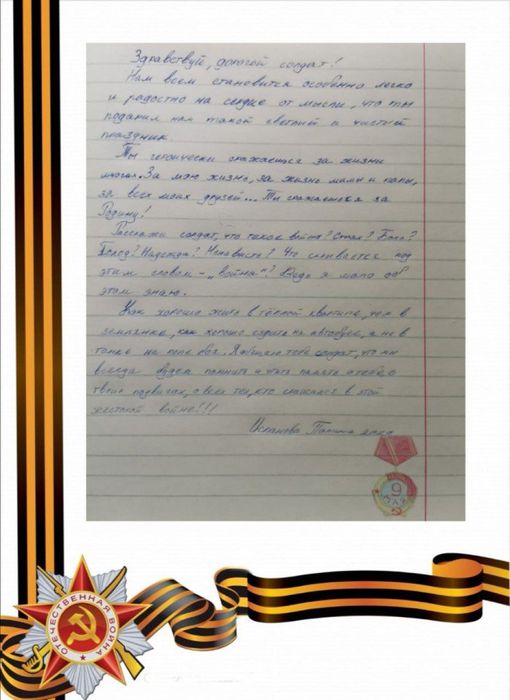 Здравствуй, дорогой солдат!
Нам всем становится особенно легко
и радостно на сердце от мысли, что ты
подарил нам такой светлый и чистый
праздник.
Ты героически сражаешься за жизни
многих. За мою жизнь, за жизнь мамы и папы,
за всех моих друзей... Ты сражаешься за
Родину!
Расскажи солдат, что такое война? Страх? Боль?
Голод? Надежда? Ненависть? Что скрывается под
этим словом - "война"? Ведь я мало об
этом знаю.
Как хорошо жить в тёплой квартире, чем в
землянке, как хорошо ездить на автобусе, а не в
танке на поле боя. Я обещаю тебе солдат, что мы
всегда будем помнить и чтить память о тебе о
твоих подвигах, о всех тех, кто сражался в этой
жестокой войне!!!
Полина
9
МАЯ
ОТЕЧЕСТВЕННАЯ ВОЙНА